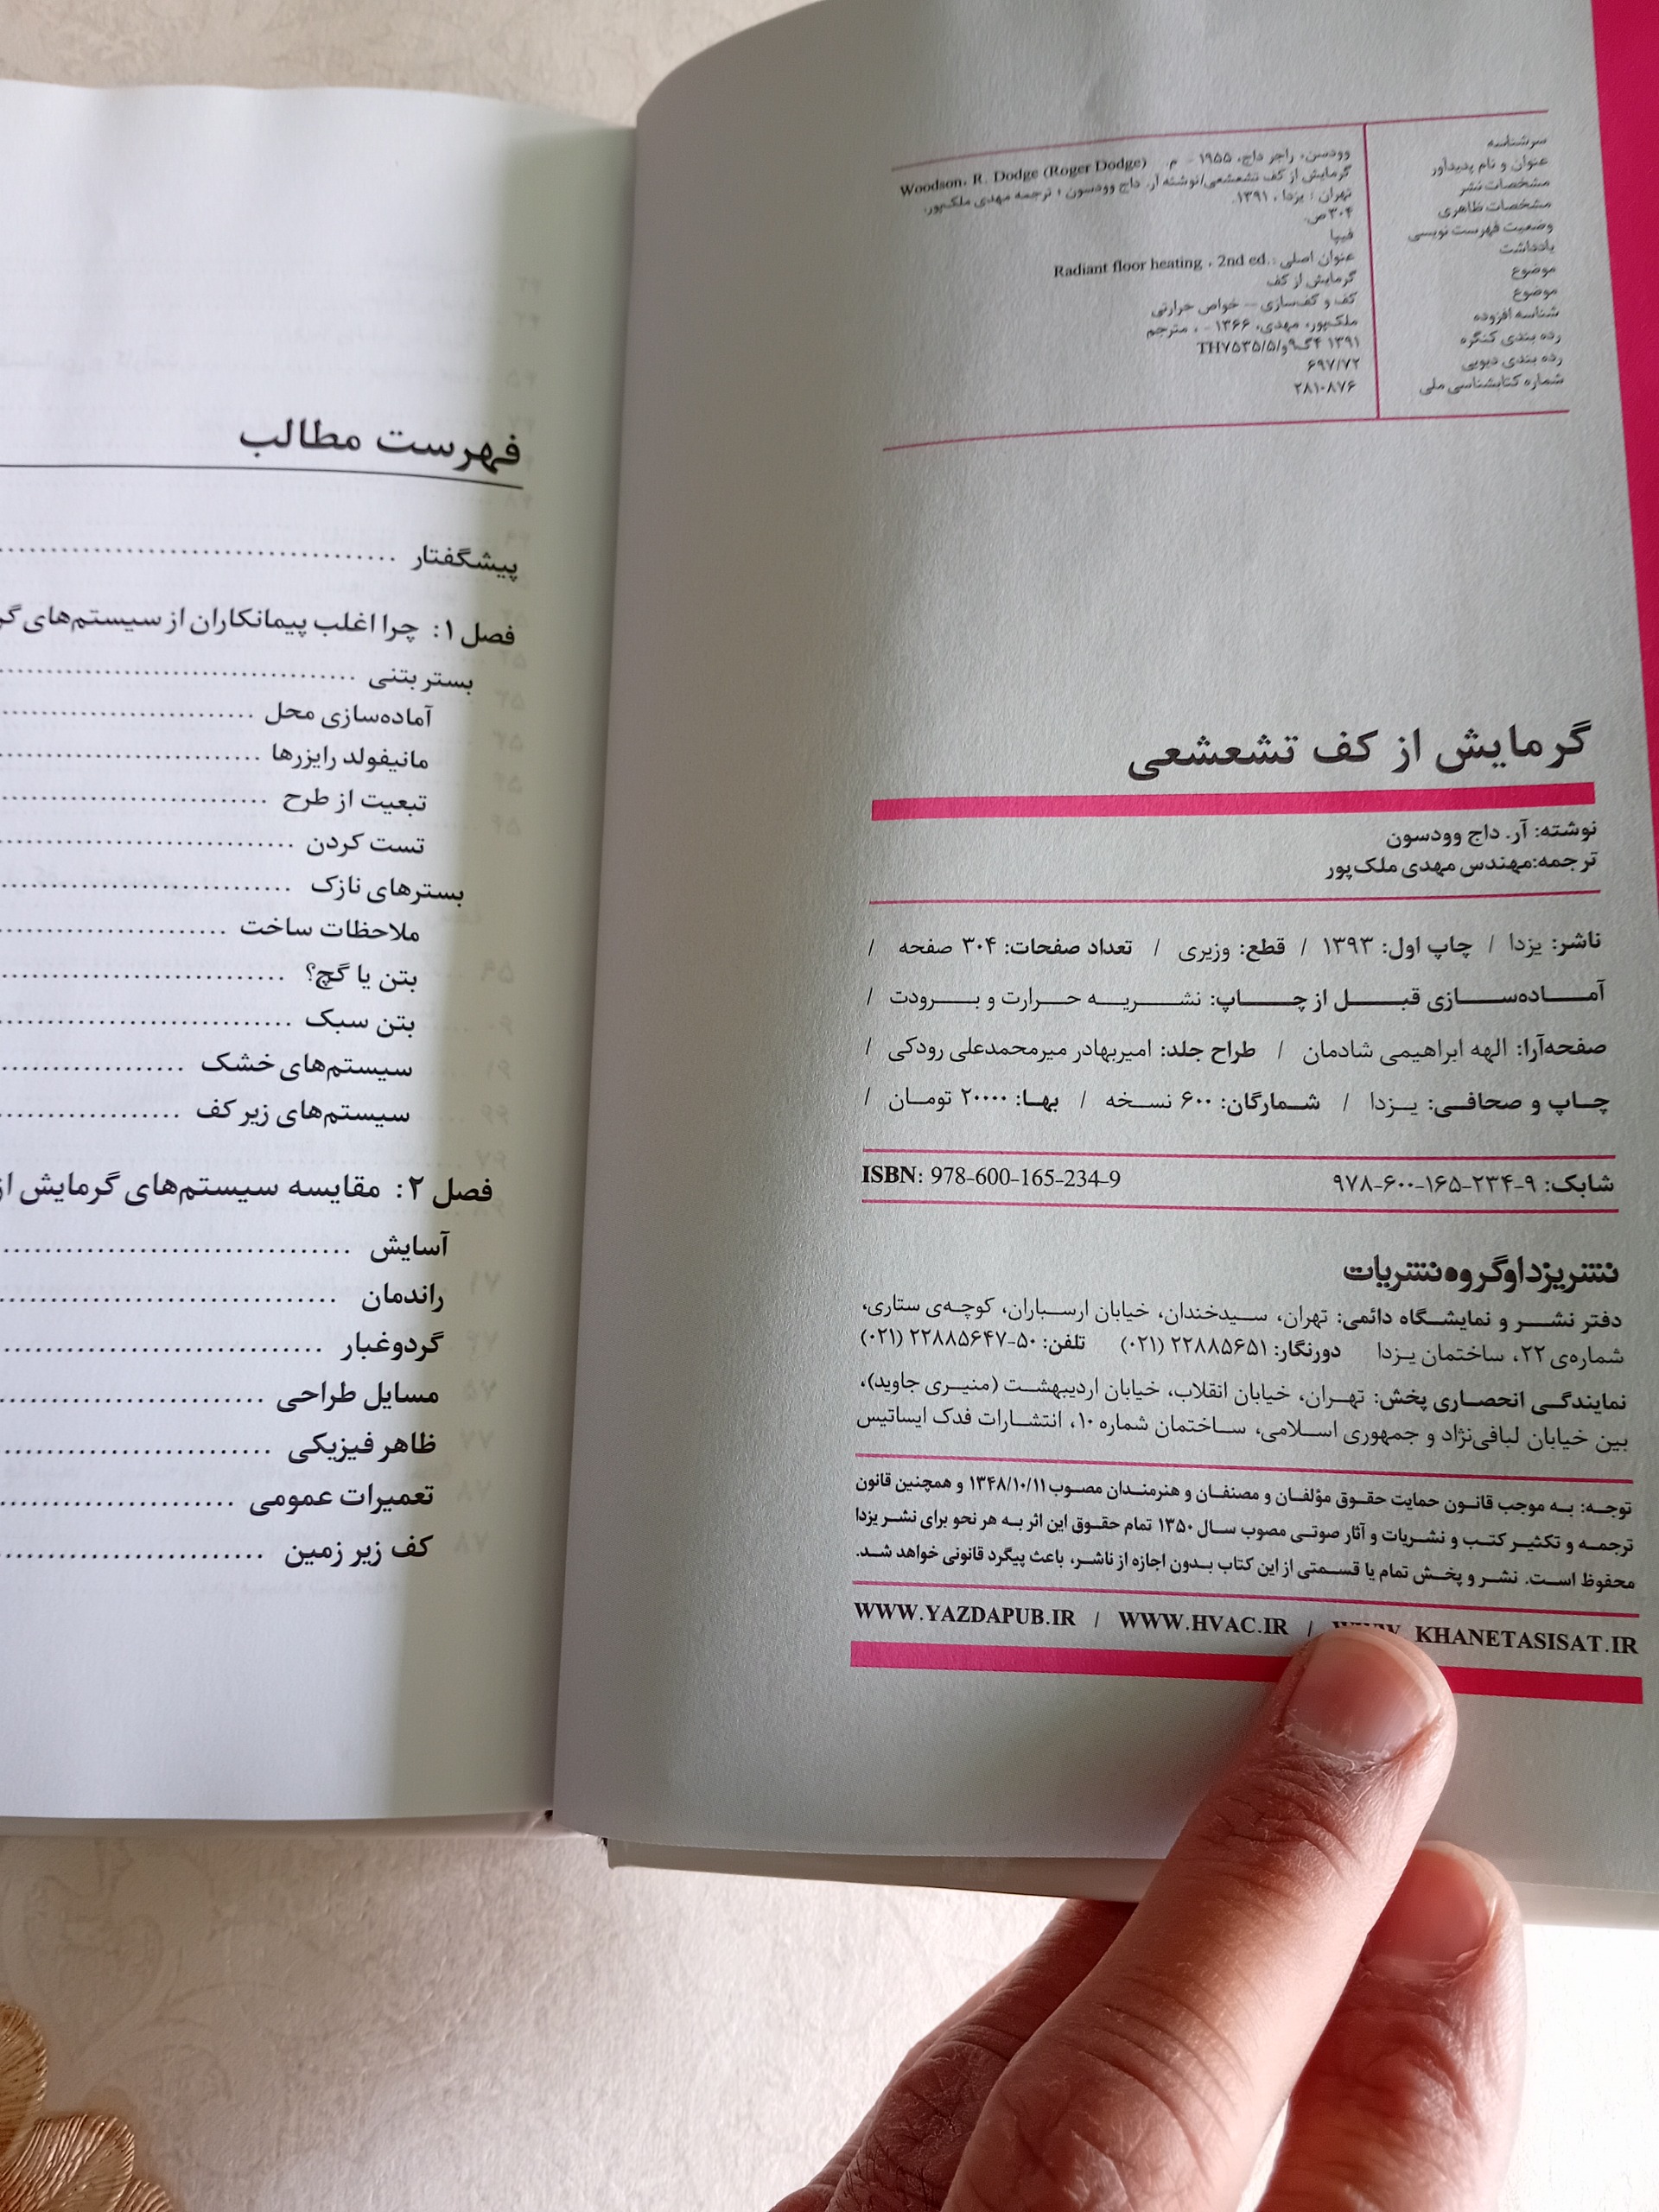 سرشناسه وودسن، راجر داج، ۱۹۵۵ - م. Woodson, R. Dodge (Roger Dodge)
عنوان و نام پدیدآور گرمایش از کف تشعشعی/نوشته آر. داج وودسون ؛ ترجمه مهدی ملک‌پور.
مشخصات نشر تهران : یزدا ، ۱۳۹۱.
مشخصات ظاهری ۳۰۴ص.
وضعیت فهرست نویسی فیپا
یادداشت عنوان اصلی : Radiant floor heating , 2nd ed.
موضوع گرمایش از کف
موضوع کف و کف‌سازی -- خواص حرارتی
شناسه افزوده ملک‌پور، مهدی، ۱۳۶۶ - ، مترجم
رده بندی کنگره ۱۳۹۱ ۴گ۹و/TH۷۵۳۵/۵
رده بندی دیویی ۶۹۷/۷۲
شماره کتابشناسی ملی ۲۸۱۰۸۷۶
گرمایش از کف تشعشعی
نوشته: آر. داج وودسون
ترجمه:مهندس مهدی ملک‌پور
ناشر: یزدا / چاپ اول: ۱۳۹۳ / قطع: وزیری / تعداد صفحات: ۳۰۴ صفحه /
آماده‌سازی قبل از چاپ: نشریه حرارت و برودت /
صفحه‌آرا: الهه ابراهیمی شادمان / طراح جلد: امیربهادر میرمحمدعلی رودکی /
چاپ و صحافی: یزدا / شمارگان: ۶۰۰ نسخه / بها: ۲۰۰۰۰ تومان /
شابک: ۹-۲۳۴-۱۶۵-۶۰۰-۹۷۸ ISBN: 978-600-165-234-9
نشر یزدا و گروه نشریات
دفتر نشر و نمایشگاه دائمی: تهران، سیدخندان، خیابان ارسباران، کوچه‌ی ستاری،
شماره‌ی ۲۲، ساختمان یزدا دورنگار: ۲۲۸۸۵۶۵۱ (۰۲۱) تلفن: ۵۰-۲۲۸۸۵۶۴۷ (۰۲۱)
نمایندگی انحصاری پخش: تهران، خیابان انقلاب، خیابان اردیبهشت (منیری جاوید)،
بین خیابان لبافی‌نژاد و جمهوری اسلامی، ساختمان شماره ۱۰، انتشارات فدک ایساتیس
توجه: به موجب قانون حمایت حقوق مؤلفان و مصنفان و هنرمندان مصوب ۱۳۴۸/۱۰/۱۱ و همچنین قانون
ترجمه و تکثیر کتب و نشریات و آثار صوتی مصوب سال ۱۳۵۰ تمام حقوق این اثر به هر نحو برای نشر یزدا
محفوظ است. نشر و پخش تمام یا قسمتی از این کتاب بدون اجازه از ناشر، باعث پیگرد قانونی خواهد شد.
WWW.YAZDAPUB.IR / WWW.HVAC.IR / WWW. KHANETASISAT.IR
فهرست مطالب
پیشگفتار
فصل ۱: چرا اغلب پیمانکاران از سیستم‌های
بستر بتنی
آماده‌سازی محل
مانیفولد رایزرها
تبعیت از طرح
تست کردن
بسترهای نازک
ملاحظات ساخت
بتن یا گچ؟
بتن سبک
سیستم‌های خشک
سیستم‌های زیر کف
فصل ۲: مقایسه سیستم‌های گرمایش از
آسایش
راندمان
گردوغبار
مسایل طراحی
ظاهر فیزیکی
تعمیرات عمومی
کف زیر زمین